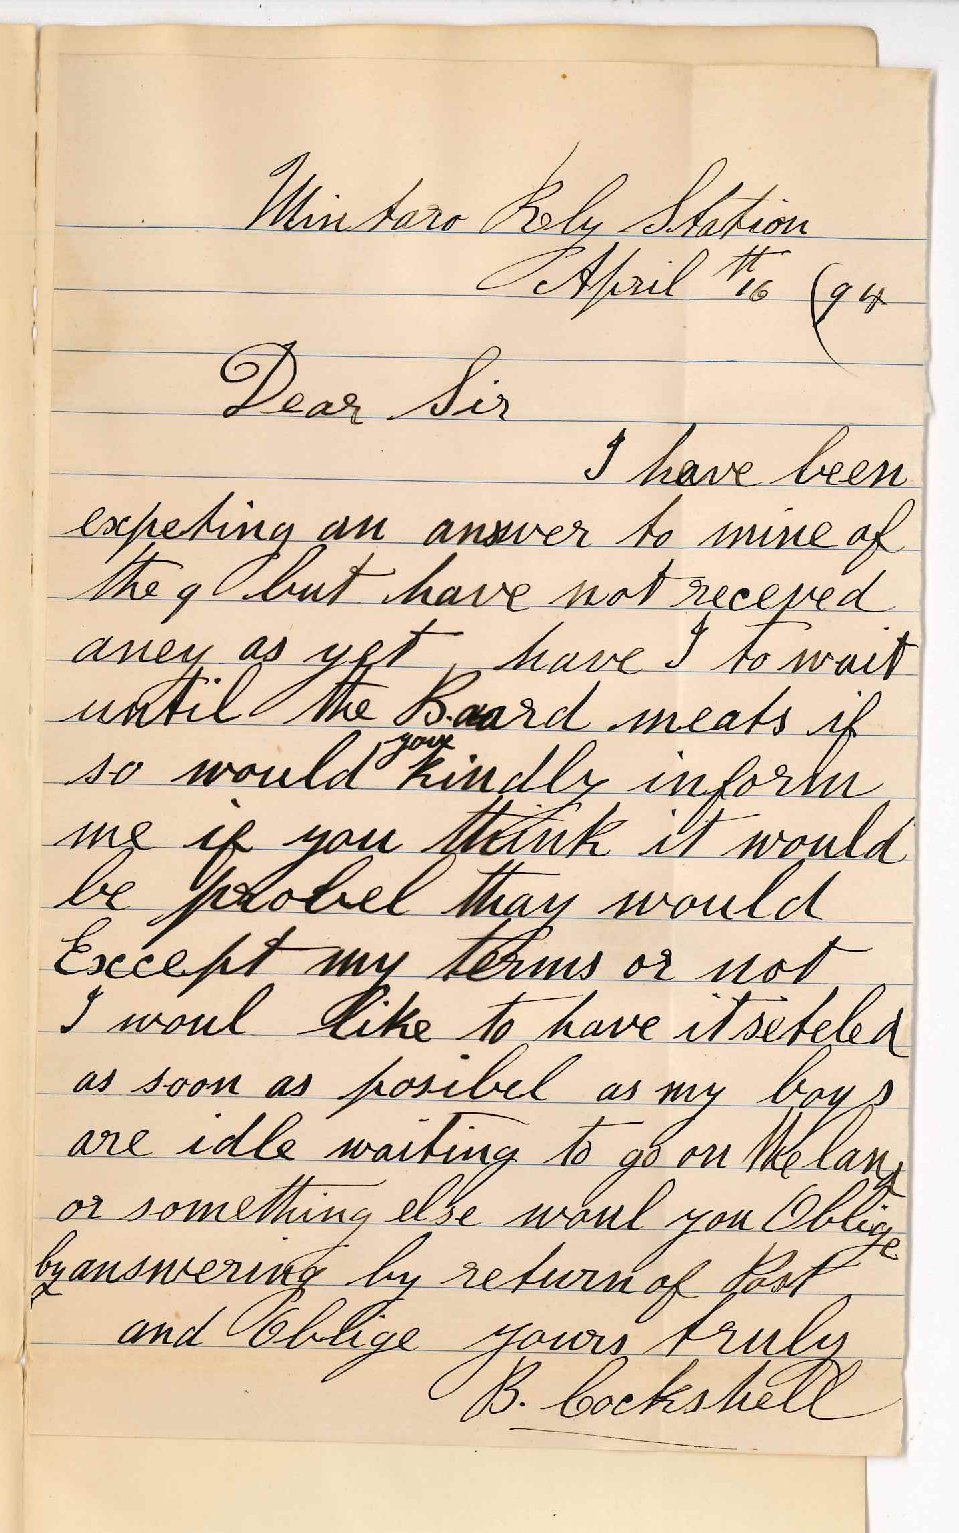 Mintaro Rely Station
April 16th (94
Dear Sir
I have been
expeting an answer to mine of
the 9 but have not receved
aney as yet, have I to wait
until the Board meats if
so would you kindly inform
me if you think it would
be probel thay would
Except my terms or not
I woul like to have it seteled
as soon as posibel as my boys
are idle waiting to go on the land
or something else woul you Oblige
by answering by return of Post
and Oblige yours truly
B. Cockshell